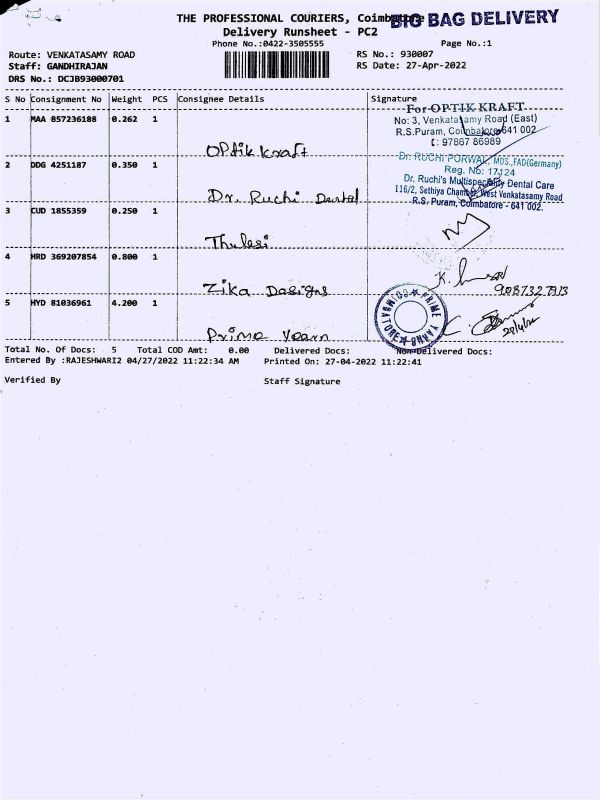 THE PROFESSIONAL COURIERS, Coimbatore
BIG BAG DELIVERY
Delivery Runsheet - PC2
Phone No.:0422-3505555
Page No.:1
Route: VENKATASAMY ROAD
RS No.: 930007
Staff: GANDHIRAJAN
RS Date: 27-Apr-2022
DRS No.: DCJB93000701
S No Consignment No Weight PCS Consignee Details Signature
1 MAA 057236188 0.262 1
OPtik kraft
For OPTIK KRAFT
No: 3, Venkatasamy Road (East)
R.S.Puram, Coimbatore-641 002.
: 97867 86989
2 DDG 4251187 0.350 1
Dr. Ruchi Dental
Dr. RUCHI PORWAL, MDS.,FAD(Germany)
Reg. No: 17124
Dr. Ruchi's Multispeciality Dental Care
116/2, Sethiya Chamber, West Venkatasamy Road
R.S. Puram, Coimbatore - 641 002.
3 CUD 1855359 0.250 1
Thulasi
4 HRD 369207854 0.800 1
Zika Dasigns
9087327913
5 HYD 81036961 4.200 1
Prima Yaarn
PRIME YAARN
COIMBATORE
Total No. Of Docs: 5 Total COD Amt: 0.00 Delivered Docs: Non-Delivered Docs:
Entered By :RAJESHWARI2 04/27/2022 11:22:34 AM Printed On: 27-04-2022 11:22:41
Verified By Staff Signature